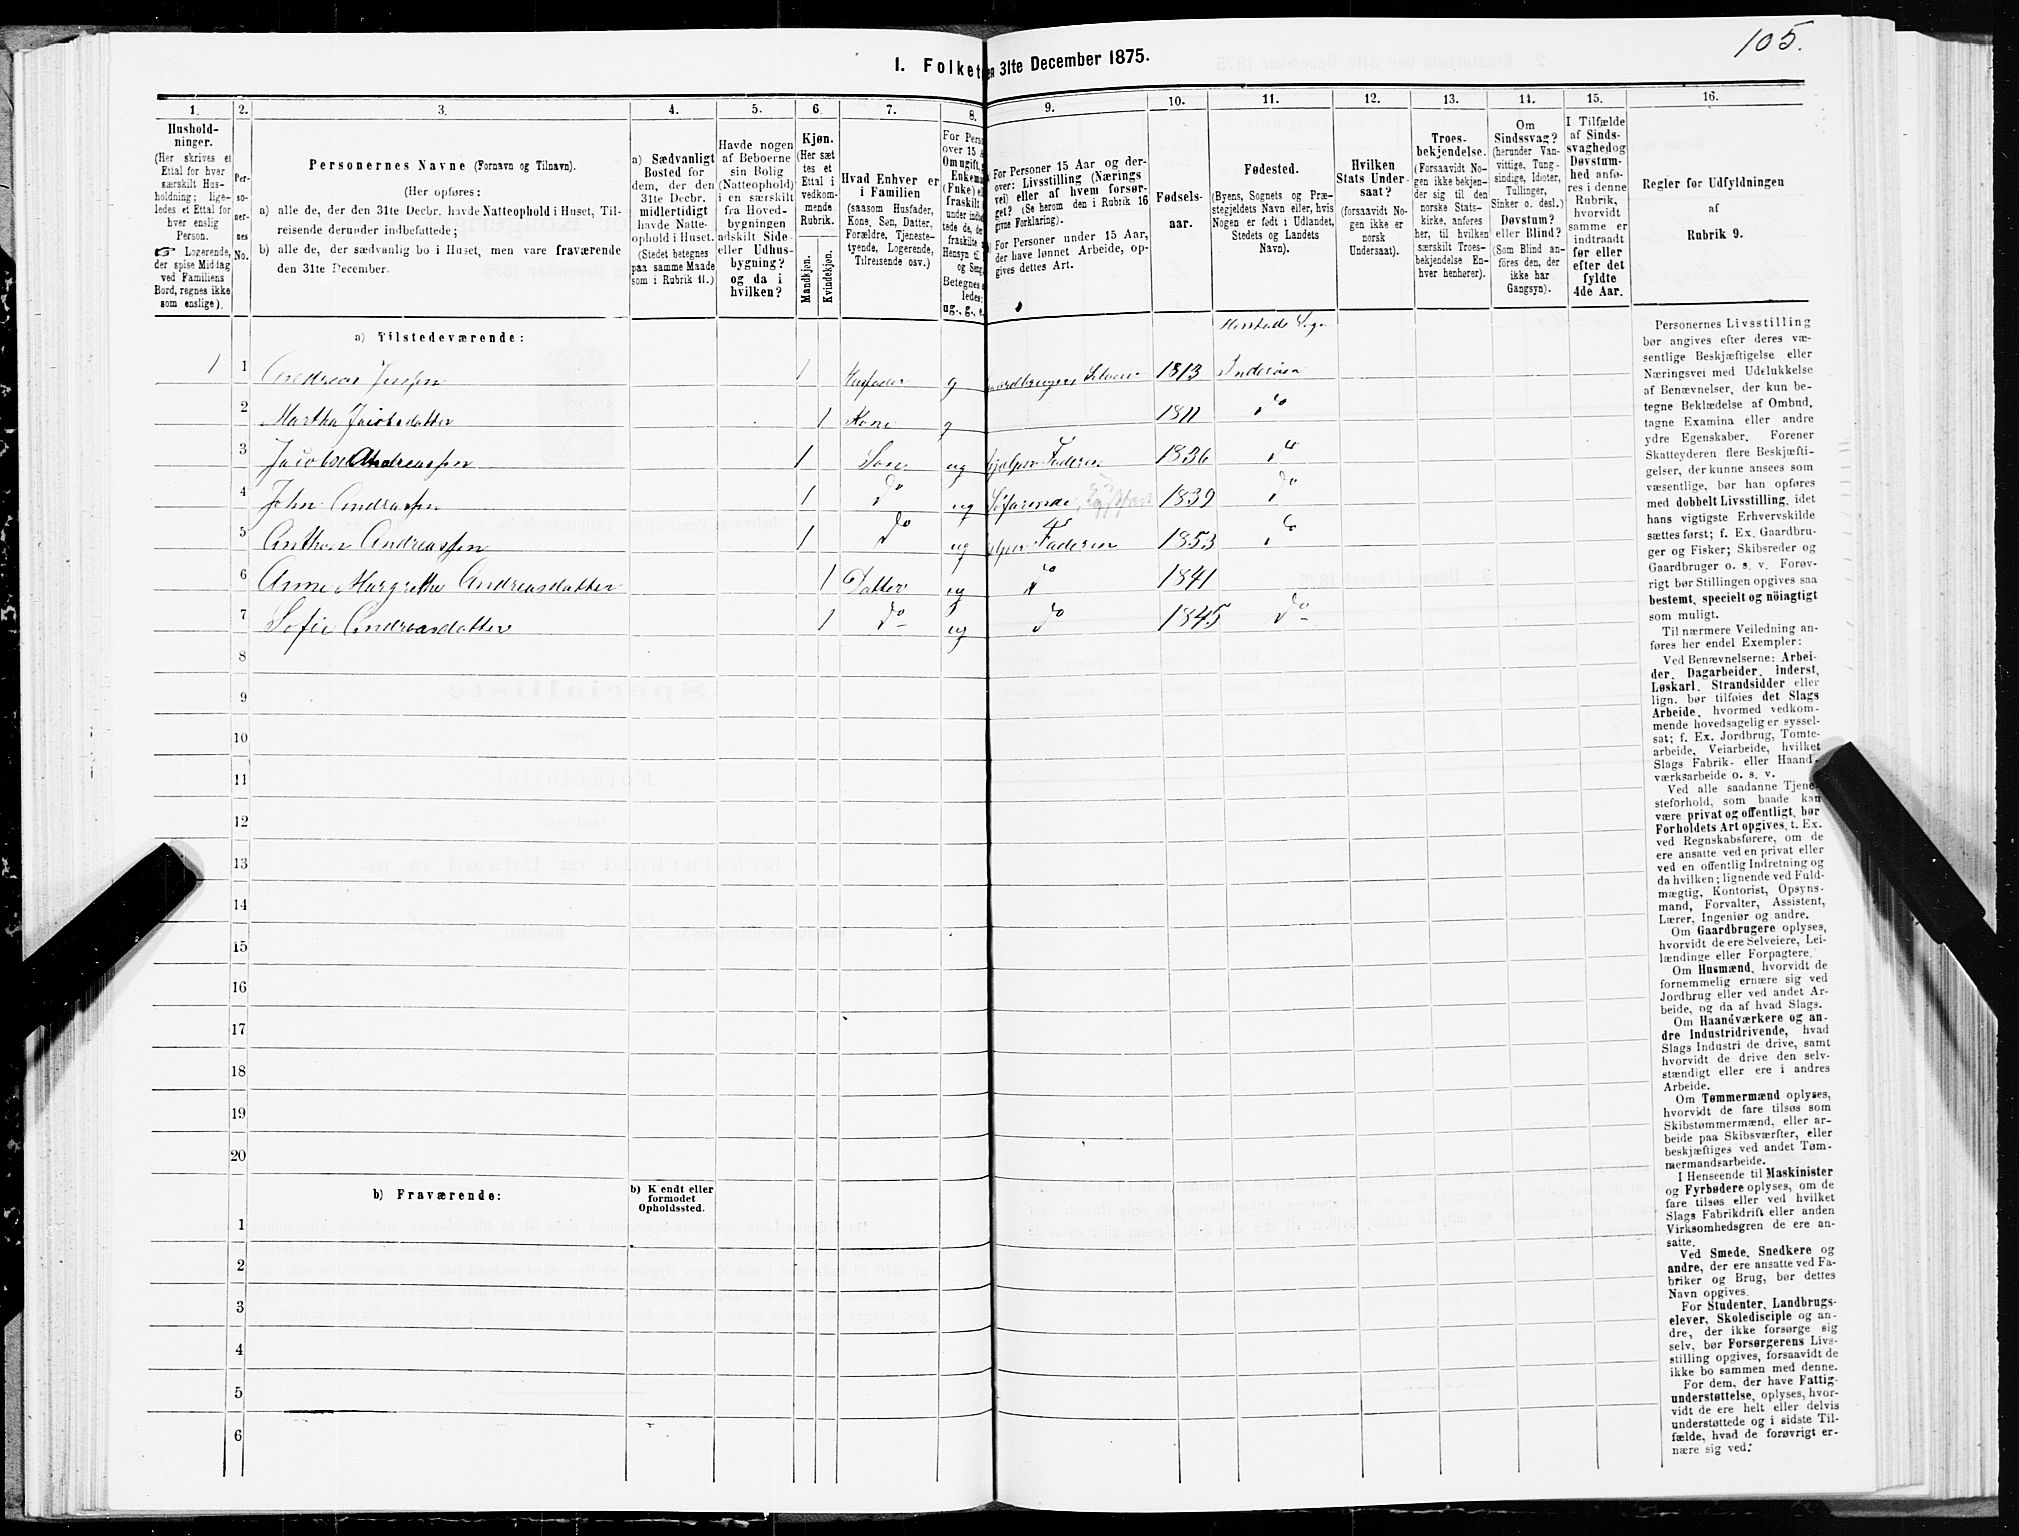 105.
I. Folket
en 31te December 1875.
1. 2. 3. 4. 5. 6. 7. 8. 9. 10. 11. 12. 13. 14. 15. 16.
Hushold-
ninger.
(Her skrives et
Ettal for hver
særskilt Hus-
holdning; lige-
ledes et Ettal for
hver enslig
Person.
☞ Logerende,
der spise Middag
ved Familiens
Bord, regnes ikke
som enslige).
Per-
so-
ner-
nes
No.
Personernes Navne (Fornavn og Tilnavn).
(Her opføres:
a) alle de, der den 31te Decbr. havde Natteophold i Huset, Til-
reisende derunder indbefattede;
b) alle de, der sædvanlig bo i Huset, men vare fraværende
den 31te December.
a) Sædvanligt
Bosted for
dem, der den
31te Decbr.
midlertidigt
havde Natte-
ophold i Huset.
(Stedet betegnes
paa samme Maade
som i Rubrik 11.)
Havde nogen
af Beboerne
sin Bolig
(Natteophold)
i en særskilt
fra Hoved-
bygningen
adskilt Side-
eller Udhus-
bygning?
og da i
hvilken?
Kjøn.
(Her sæt
tes et
Ettal i
vedkom-
mende
Rubrik.
Mandkjøn.
Kvindekjøn.
Hvad Enhver er
i Familien
(saasom Husfader,
Kone, Søn, Datter,
Forældre, Tjeneste-
tyende, Logerende,
Tilreisende osv.)
For Pers
over 15 A
Om ugift,
Enkema
(Enke) e
fraskilt
under indb
tede de, de
fraskilte
Hensyn ti
og Seng
Betegnes s
ledes:
ug., g., e.
a) For Personer 15 Aar og der-
over: Livsstilling (Nærings
vei) eller af hvem forsør-
get? (Se herom den i Rubrik 16
givne Forklaring).
b) For Personer under 15 Aar,
der have lønnet Arbeide, op-
gives dettes Art.
Fødsels-
aar.
Fødested.
(Byens, Sognets og Præ-
stegjeldets Navn eller, hvis
Nogen er født i Udlandet,
Stedets og Landets
Navn).
Hvilken
Stats Under-
saat?
(forsaavidt No-
gen ikke er
norsk
Undersaat).
Troes-
bekjendelse.
(Forsaavidt No-
gen ikke bekjen-
der sig til den
norske Stats-
kirke, anføres
her, til hvilken
særskilt Troes-
bekjendelse En-
hver henhører).
Om
Sindssvag?
(herunder Van-
vittige, Tung-
sindige, Idioter,
Tullinger,
Sinker o. desl.)
Døvstum?
eller Blind?
(Som Blind an-
føres den, der
ikke har
Gangsyn).
I Tilfælde
af Sinds-
svaghed og
Døvstum-
hed anfø-
res i denne
Rubrik,
hvorvidt
samme er
indtraadt
før eller
efter det
fyldte
4de Aar.
Regler for Udfyldningen
af
Rubrik 9.
a) Tilstedeværende:
1 1 Andreas Jensen 1 Husfader g Gaardbruger Selveier 1813 Inderøen
2 Martha Jacobsdatter 1 Kone g 1811 do
3 Jacob Andreassen 1 Søn ug hjelper Faderen 1836 do
4 John Andreassen 1 do ug Søfarende 1839 do
5 Anthon Andreassen 1 do ug hjelper Faderen 1853 do
6 Anne Margrethe Andreasdatter 1 Datter ug do 1841
7 Sofie Andreasdatter 1 do ug do 1845 do
8
9
10
11
12
13
14
15
16
17
18
19
20
b) Fraværende:
b) Kjendt eller
formodet
Opholdssted.
1
2
3
4
5
6
Personernes Livsstilling
bør angives efter deres væ-
sentlige Beskjæftigelse eller
Næringsvei med Udelukkelse
af Benævnelser, der kun be-
tegne Beklædelse af Ombud,
tagne Examina eller andre
ydre Egenskaber. Forener
Skatteyderen flere Beskjæfti-
gelser, der kunne ansees som
væsentlige, bør han opføres
med dobbelt Livsstilling, idet
hans vigtigste Erhvervskilde
sættes først; f. Ex. Gaardbru-
ger og Fisker; Skibsreder og
Gaardbruger o. s. v. Forøv-
rigt bør Stillingen opgives saa
bestemt, specielt og nöiagtigt
som muligt.
Til nærmere Veiledning an-
føres her endel Exempler:
Ved Benævnelserne: Arbei-
der, Dagarbeider, Inderst,
Løskarl, Strandsidder eller
lign. bør tilføies det Slags
Arbeide, hvormed vedkom-
mende hovedsagelig er syssel-
sat; f. Ex. Jordbrug, Tomte-
arbeide, Veiarbeide, hvilket
Slags Fabrik- eller Haand-
værksarbeide o. s. v.
Ved alle saadanne Tjene-
steforhold, som baade kan
være privat og offentligt, bør
Forholdets Art opgives, t. Ex.
ved Regnskabsførere, om de
ere ansatte ved en privat eller
ved en offentlig Indretning og
da hvilken; lignende ved Fuld-
mægtig, Kontorist, Opsyns-
mand, Forvalter, Assistent,
Lærer, Ingeniør og andre.
Om Gaardbrugere oplyses,
hvorvidt de ere Selveiere, Lei-
lændinge eller Forpagtere.
Om Husmænd, hvorvidt de
fornemmelig ernære sig ved
Jordbrug eller ved andet Ar-
beide, og da af hvad Slags.
Om Haandværkere og an-
dre Industridrivende, hvad
Slags Industri de drive, samt
hvorvidt de drive den selv-
stændigt eller ere i andres
Arbeide.
Om Tømmermænd oplyses,
hvorvidt de fare tilsøs som
Skibstømmermænd, eller ar-
beide paa Skibsværfter, eller
beskjæftiges ved andet Tøm-
mermandsarbeide.
I Henseende til Maskinister
og Fyrbødere oplyses, om de
fare tilsøs eller ved hvilket
Slags Fabrikdrift eller anden
Virksomhedsgren de ere an-
satte.
Ved Smede, Snedkere og
andre, der ere ansatte ved Fa-
briker og Brug, bør dettes
Navn opgives.
For Studenter, Landbrugs-
elever, Skoledisciple og an-
dre, der ikke forsørge sig
selv, bør Forsørgerens Livs-
stilling opgives, forsaavidt de
ikke bo sammen med denne.
For dem, der have Fattig-
understøttelse, oplyses, hvor-
vidt de ere helt eller delvis
understøttede og i sidste Til-
fælde, hvad de forøvrigt er-
nære sig ved.